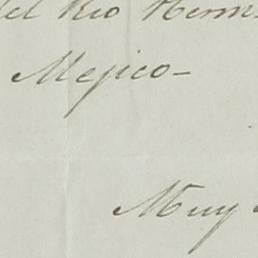 del Rio Herm
Mejico-
Muy